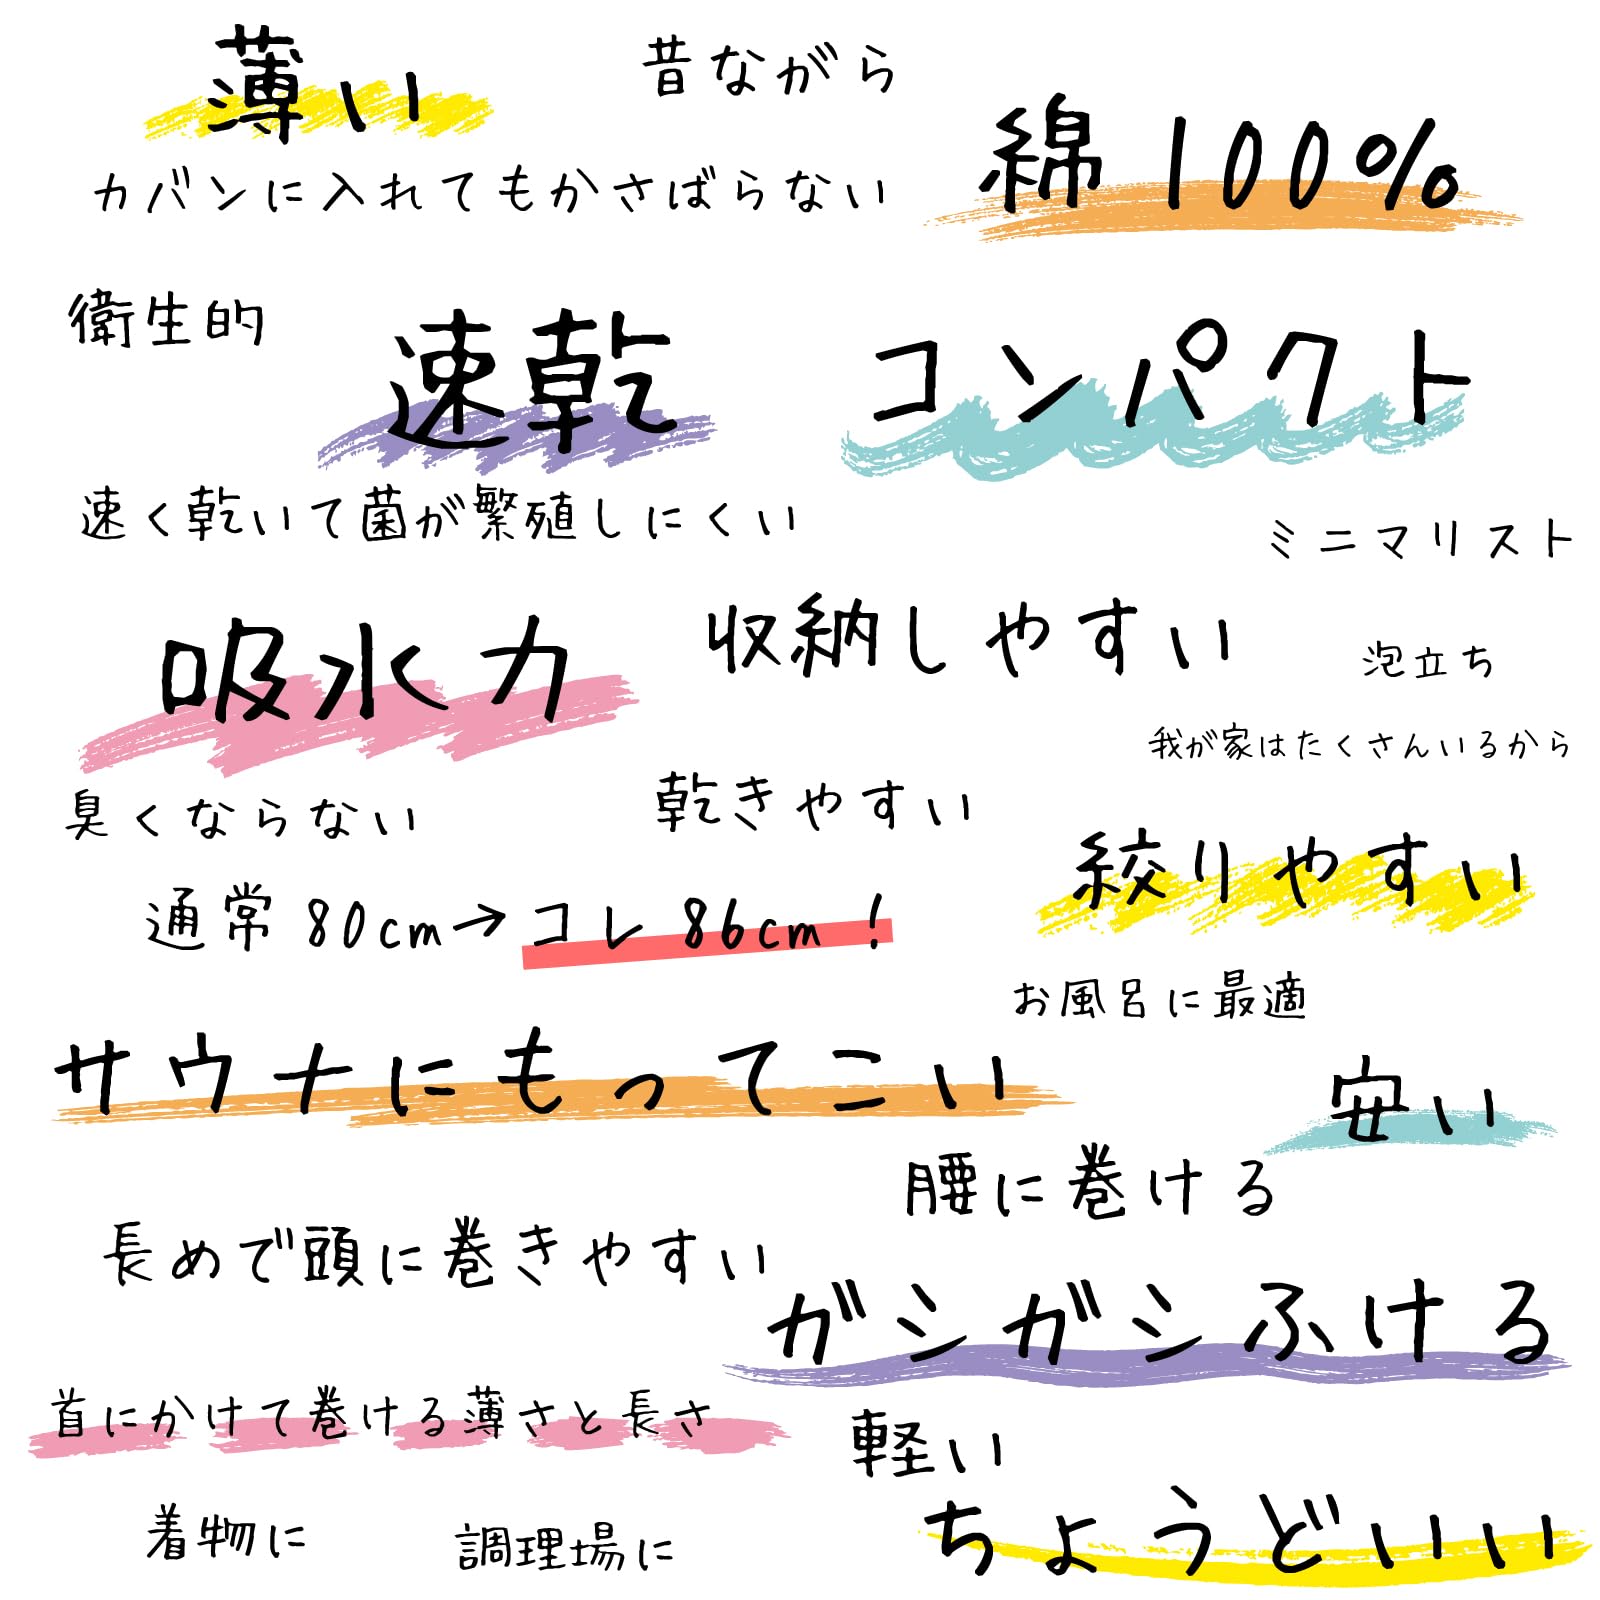 薄い
昔ながら
綿100%
カバンに入れてもかさばらない
衛生的
速乾
コンパクト
速く乾いて菌が繁殖しにくい
ミニマリスト
吸水力
収納しやすい
泡立ち
我が家はたくさんいるから
臭くならない
乾きやすい
絞りやすい
通常80cm→コレ86cm!
お風呂に最適
サウナにもってこい
安い
腰に巻ける
長めで頭に巻きやすい
ガシガシふける
首にかけて巻ける薄さと長さ
軽い
着物に
調理場に
ちょうどいい